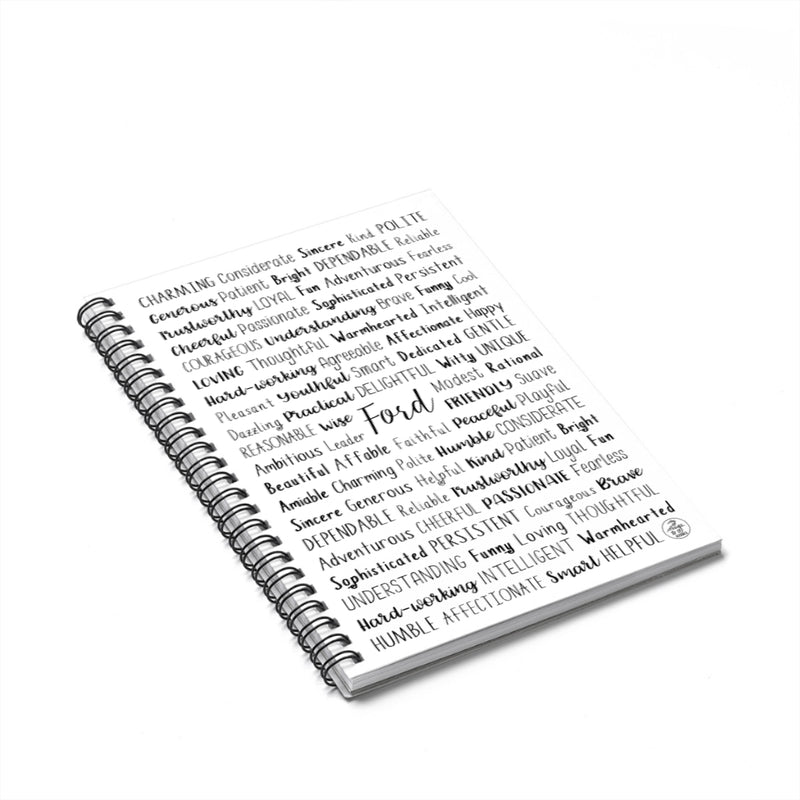 CHARMING Considerate Sincere Kind POLITE
Generous Patient Bright DEPENDABLE Reliable
Trustworthy LOYAL Fun Adventurous Fearless
Cheerful Passionate Sophisticated Persistent
COURAGEOUS Understanding Brave Funny Cool
LOVING Thoughtful Warmhearted Intelligent
Hard-working Agreeable Affectionate Happy
Pleasant Youthful Smart Dedicated GENTLE
Dazzling Practical DELIGHTFUL Witty UNIQUE
REASONABLE Wise Ford Modest Rational
Ambitious Leader FRIENDLY Suave
Beautiful Affable Faithful Peaceful Playful
Amiable Charming Polite Humble CONSIDERATE
Sincere Generous Helpful Kind Patient Bright
DEPENDABLE Reliable Trustworthy Loyal Fun
Adventurous CHEERFUL PASSIONATE Fearless
Sophisticated PERSISTENT Courageous Brave
UNDERSTANDING Funny Loving THOUGHTFUL
Hard-working INTELLIGENT Warmhearted
HUMBLE AFFECTIONATE Smart HELPFUL